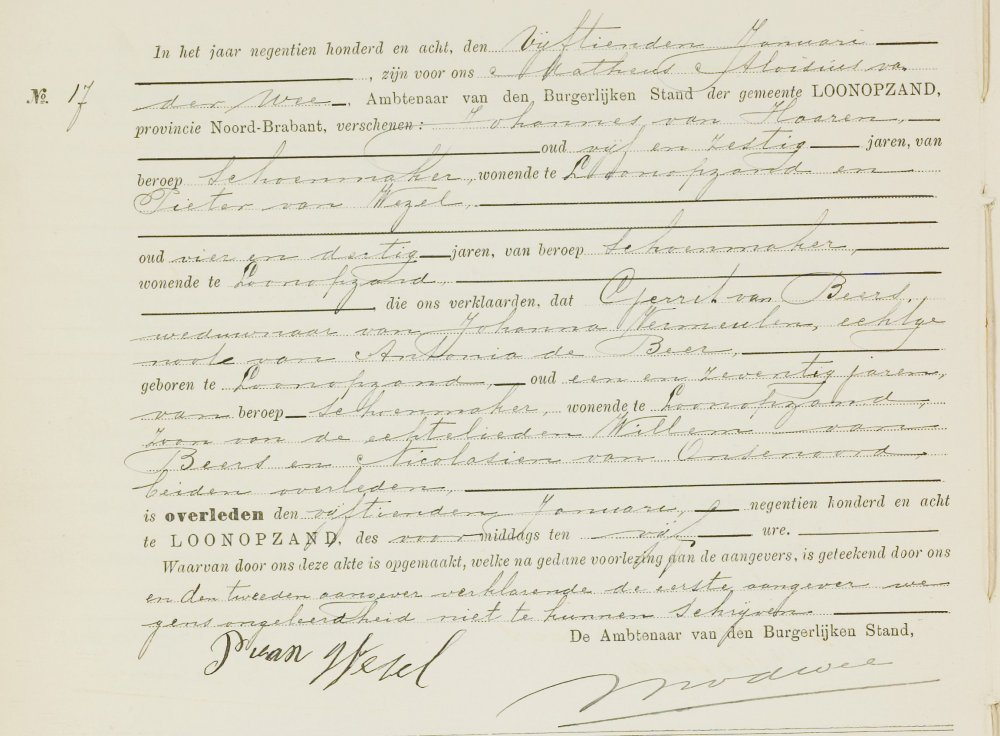 In het jaar negentien honderd en acht, den Vijftienden Januari
, zijn voor ons Matheus Aloisius van
№. 17
der Wee, Ambtenaar van den Burgerlijken Stand der gemeente LOONOPZAND,
provincie Noord-Brabant, verschenen: Johannes van Haaren,
oud vijf en zestig jaren, van
beroep schoenmaker, wonende te Loonopzand en
Pieter van Wezel,
oud vier en dertig jaren, van beroep schoenmaker,
wonende te Loonopzand,
die ons verklaarden, dat Gerrit van Beers,
weduwnaar van Johanna Vermeulen, echtge
noot van Antonia de Beer,
geboren te Loonopzand, oud een en zeventig jaren,
van beroep schoenmaker, wonende te Loonopzand,
zoon van de echtelieden Willem van
Beers en Nicolasien van Onsenoord,
beiden overleden,
is overleden den vijftienden Januari, negentien honderd en acht
te LOONOPZAND, des voormiddags ten vijf ure.
Waarvan door ons deze akte is opgemaakt, welke na gedane voorlezing aan de aangevers, is geteekend door ons
en den tweeden aangever verklarende de eerste aangever we
gens ongeleerdheid niet te kunnen schrijven.
De Ambtenaar van den Burgerlijken Stand,
P van Wesel
MvdWee